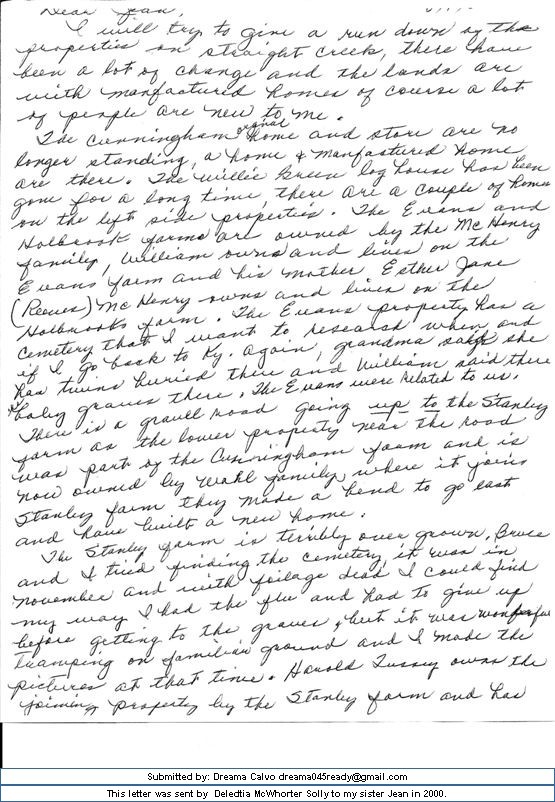 Dear Jean,
I will try to give a run down of the
properties on Straight Creek, there have
been a lot of change and the lands are
with manfactured homes of course a lot
of people are new to me.
The Cunningham orginal home and store are no
longer standing, a home & manfactured home
are there. The Willie Green log house has been
gone for a long time, there are a couple of homes
on the left side properties. The Evans and
Holbrook farms are owned by the McHenry
family, William owns and lives on the
Evans farm and his mother Esther Jane
(Reeves) McHenry owns and lives on the
Holbrooks farm. The Evans property has a
cemetery that I want to research when and
if I go back to Ky. again, grandma said she
has twins buried there and William said there
baby graves there. The Evans were related to us.
There is a gravell road going up to the Stanley
farm as the lower property near the road
was part of the Cunningham farm and is
now owned by Wahl family, where it joins
Stanley farm they made a bend to go east
and have built a new home.
The Stanley farm is terribly over grown, Bruce
and I tried finding the cemetery, it was in
November and with foilage dead I could find
my way. I had the flu and had to give up
before getting to the graves, but it was wonderful
tramping on familiar ground and I made the
pictures at that time. Harold Tussey owns the
joining property by the Stanley farm and has
Submitted by: Dreama Calvo dreama045ready@gmail.com
This letter was sent by Deledtia McWhorter Solly to my sister Jean in 2000.